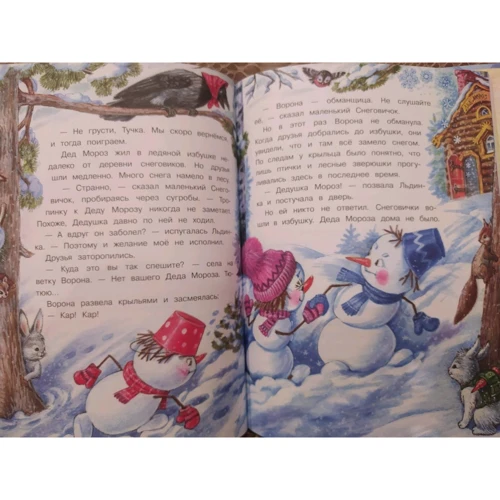 — Не грусти, Тучка. Мы скоро вернёмся
и тогда поиграем.
Дед Мороз жил в ледяной избушке не-
далеко от деревни снеговиков. Но друзья
шли медленно. Много снега намело в лесу.
— Странно, — сказал маленький Снего-
вичок, пробираясь через сугробы. — Тро-
пинку к Деду Морозу никогда не заметает.
Похоже, Дедушка давно по ней не ходил.
— А вдруг он заболел? — испугалась Льдин-
ка. — Поэтому и желание моё не исполнил.
Друзья заторопились.
— Куда это вы так спешите? — села на
ветку Ворона. — Нет вашего Деда Мороза. Тю-
тюю...
Ворона развела крыльями и засмеялась:
— Кар! Кар!
— Ворона — обманщица. Не слушайте
её, — сказал маленький Снеговичок.
Но в этот раз Ворона не обманула.
когда друзья добрались до избушки, они
увидели, что и там всё замело снегом.
По следам у крыльца было понятно, что
лишь птички и лесные зверюшки прогу-
ливались здесь в последнее время.
— Дедушка Мороз! — позвала Льдин-
ка и постучала в дверь.
Но ей никто не ответил. Снеговички во-
шли в избушку. Деда Мороза дома не было.